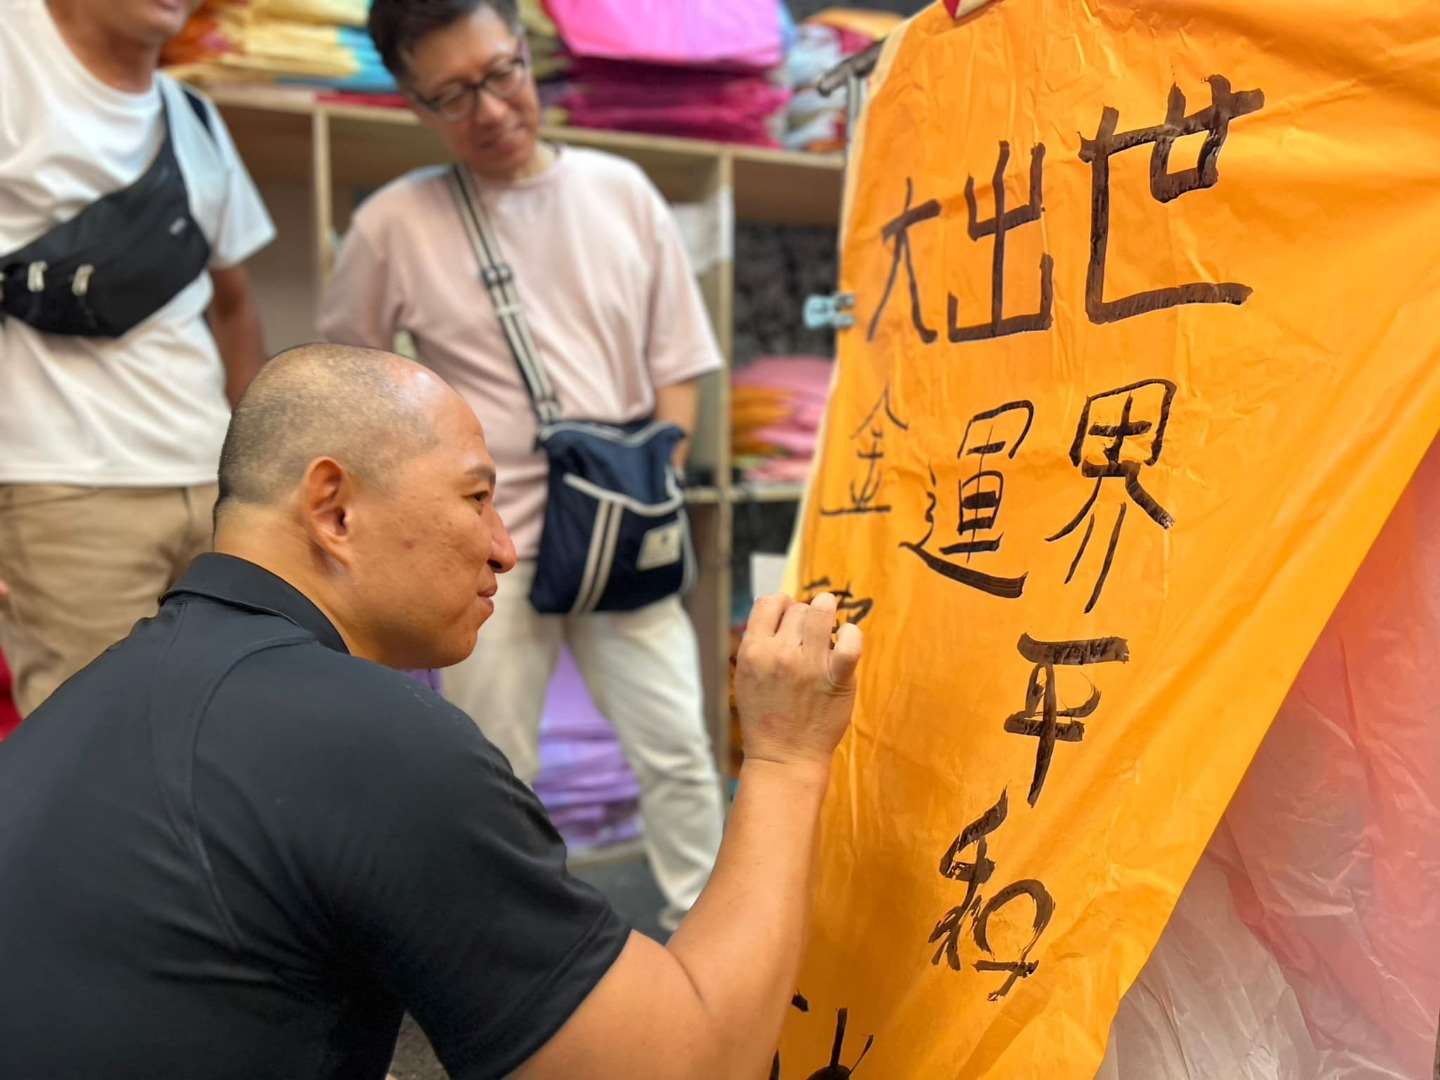 世界平和
出運
大金